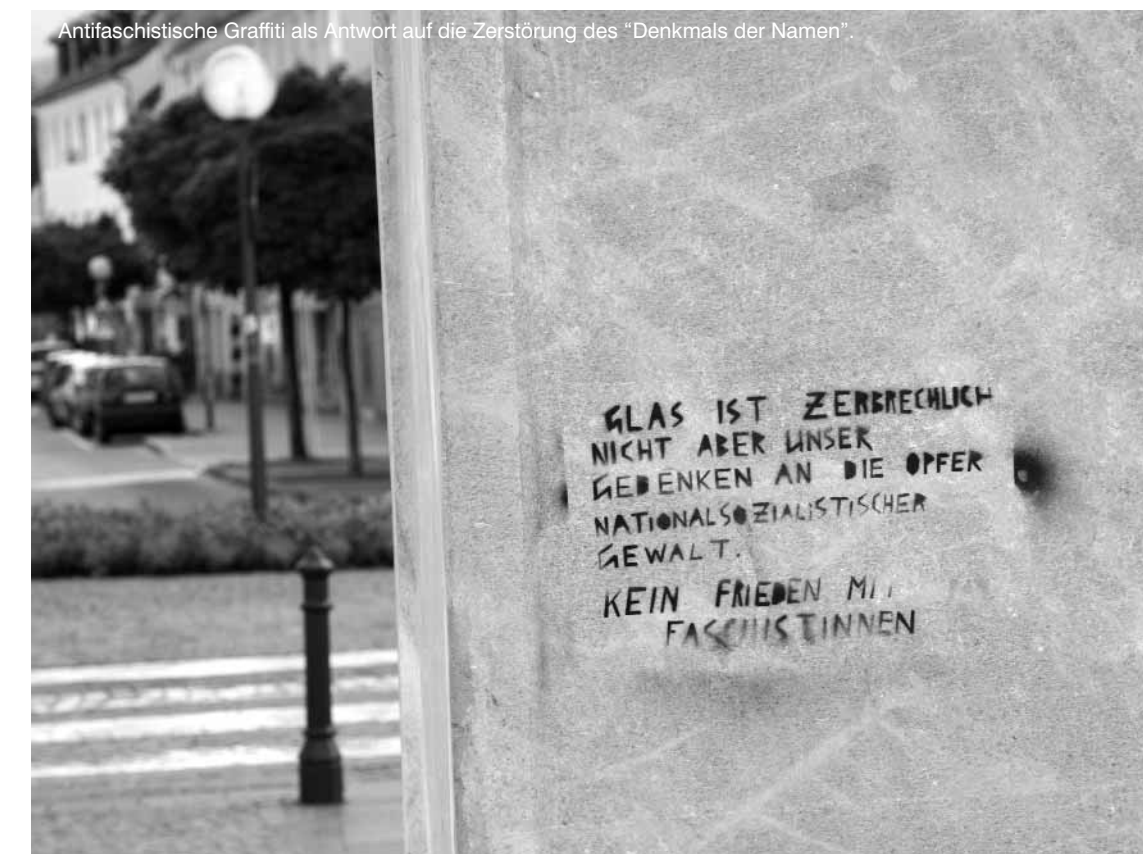 Antifaschistische Graffiti als Antwort auf die Zerstörung des “Denkmals der Namen”.
GLAS IST ZERBRECHLICH
NICHT ABER UNSER
GEDENKEN AN DIE OPFER
NATIONALSOZIALISTISCHER
GEWALT.
KEIN FRIEDEN MIT
FASCHISTINNEN